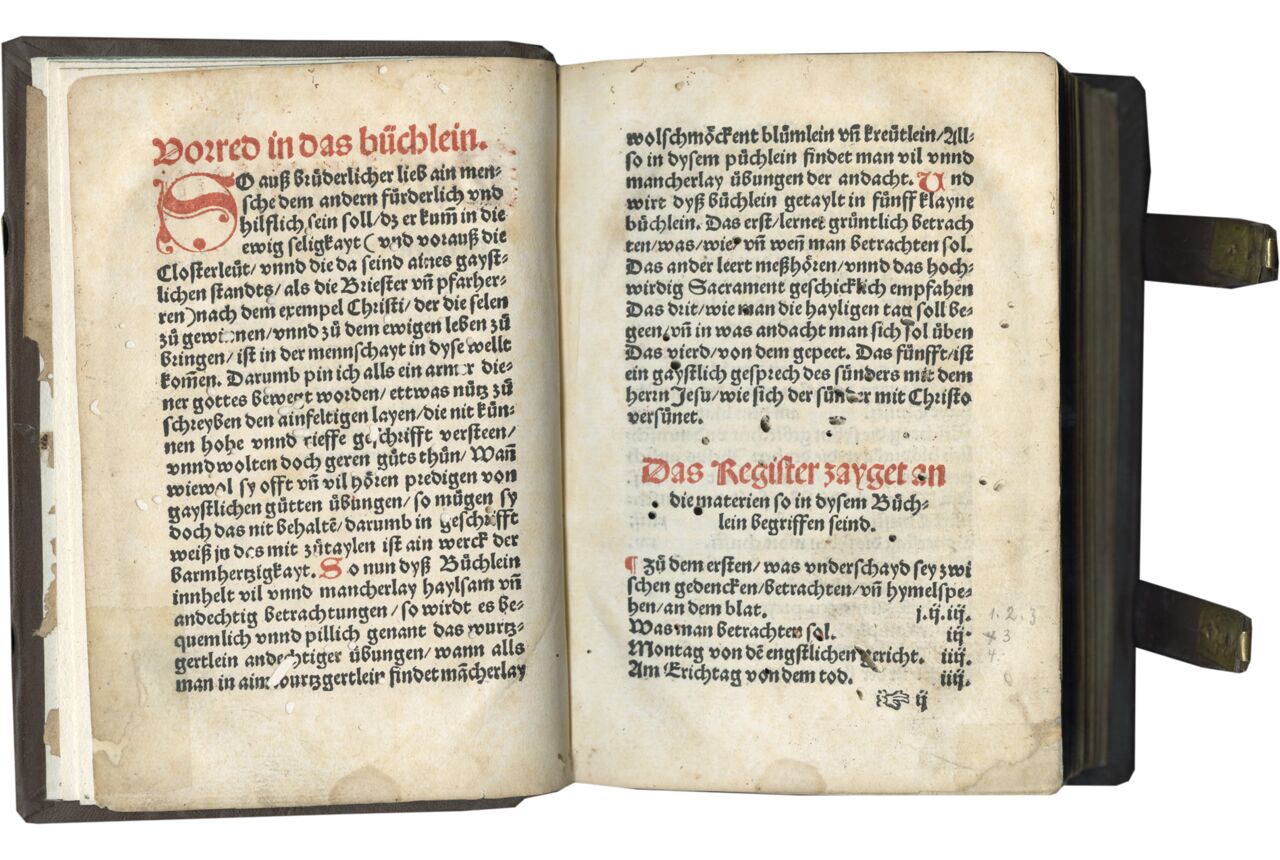 Vorred in das büchlein.
SO auß brüderlicher lieb ain men⸗
sche dem andern fürderlich vnd
hilflich sein soll/dz er kum̄ in die
ewig seligkayt ( vnd vorauß die
Closterleüt/vnnd die da seind aines gayst⸗
lichen standts/als die Briester vn̄ pfarher⸗
ren)nach dem exempel Christi/der die selen
zů gewinnen/vnnd zů dem ewigen leben zů
bringen/ist in der mennschayt in dyse wellt
kom̄en. Darumb pin ich alls ein armer die⸗
ner gottes bewegt worden/ettwas nütz zů
schreyben den ainfeltigen layen/die nit kün⸗
nen hohe vnnd tieffe geschrifft versteen/
vnnd wolten doch geren gůts thůn/Wan̄
wiewol sy offt vn̄ vil hören predigen von
gaystlichen gůtten übungen/so mügen sy
doch das nit behaltē/darumb in geschrifft
weiß jn das mit zůtaylen ist ain werck der
barmhertzigkayt. So nun dyß Büchlein
innhelt vil vnnd mancherlay haylsam vn̄
andechtig betrachtungen/so wirdt es be⸗
quemlich vnnd pillich genant das wurtz⸗
gertlein andechtiger übungen/wann alls
man in aim wurtzgertlein findet mācherlay
wolschmöckent blümlein vn̄ kreütlein/All⸗
so in dysem püchlein findet man vil vnnd
mancherlay übungen der andacht. Vnd
wirt dyß büchlein getaylt in fünff klayne
büchlein. Das erst/lernet gründtlich betrach
ten/was/wie/vn̄ wen̄ man betrachten sol.
Das ander leert meßhören/vnnd das hoch⸗
wirdig Sacrament geschicklich empfahen
Das drit/wie man die hayligen tag soll be⸗
geen/vn̄ in was andacht man sich sol üben
Das vierd/von dem gepeet. Das fünfft/ist
ein gaystlich gesprech des sünders mit dem
herrn Jesu/wie sich der sünder mit Christo
versünet.
Das Register zayget an
die materien so in dysem Büch⸗
lein begriffen seind.
¶ Zů dem ersten/was vnderschayd sey zwi
schen gedencken/betrachten/vn̄ hymelspe⸗
hen/an dem blat. j.ij.iij. 1.2.3
Was man betrachten sol. iij. 3
Montag von dē engstlichen gericht. iiij. 4.
Am Erichtag von dem tod. iiij.
☞ ij